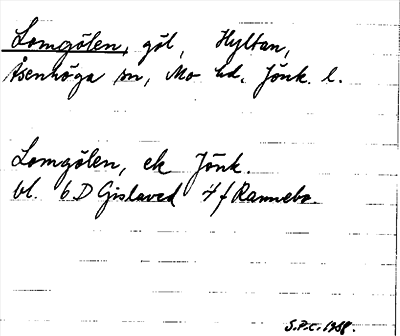 Lomgölen, göl, Hyltan,
Åsenhöga sn, Mo hd. Jönk. l.
Lomgölen, ek Jönk.
bl. 6D Gislaved 4f Rannebo.
S.P.C. 1968.